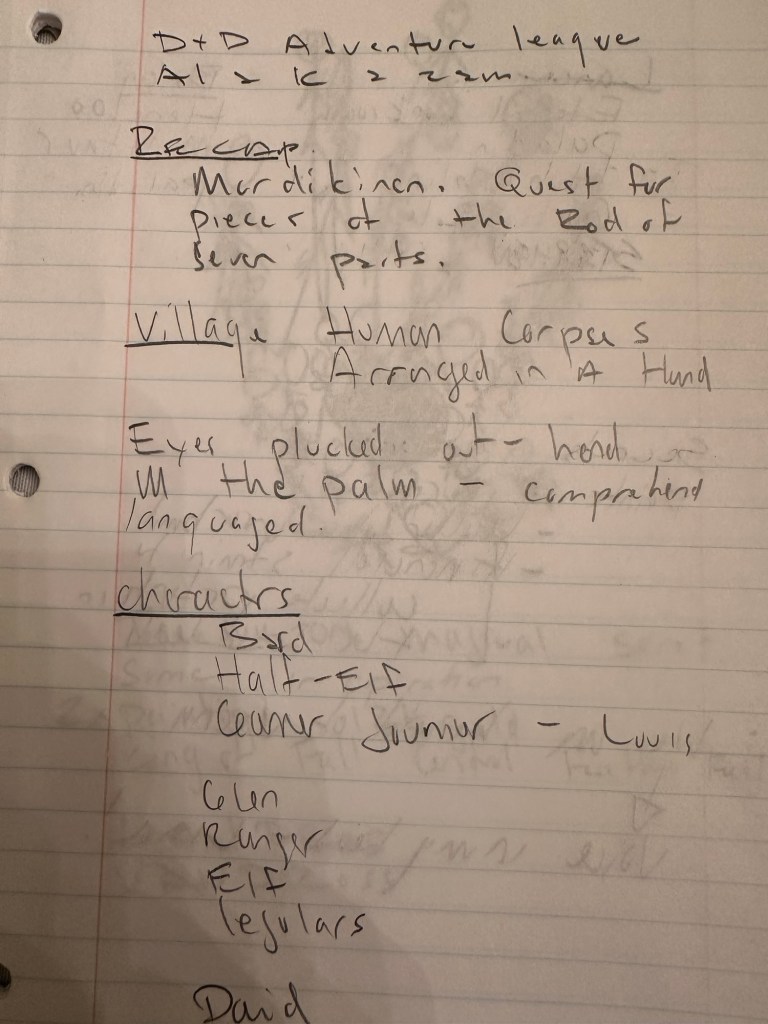 D+D Adventure league
Al2K2zzm
Recap.
Mordikinen. Quest for
pieces of the Rod of
Seven parts.
Village Human Corpses
Arranged in A Hand
Eyes plucked out - hand
in the palm - comprehend
languaged.
Charactrs
Bard
Half-Elf
- Louis
Glen
Ranger
Elf
legulars
David